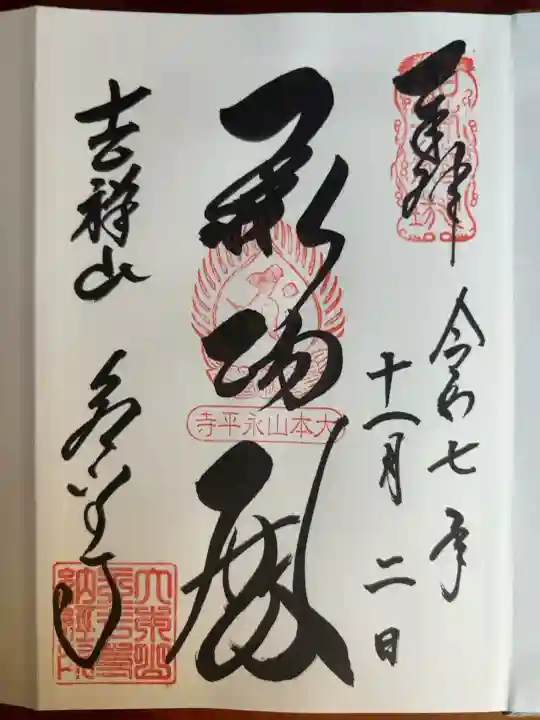 奉拝
令和七年
十一月二日
承陽殿
大本山永平寺
吉祥山
永平寺